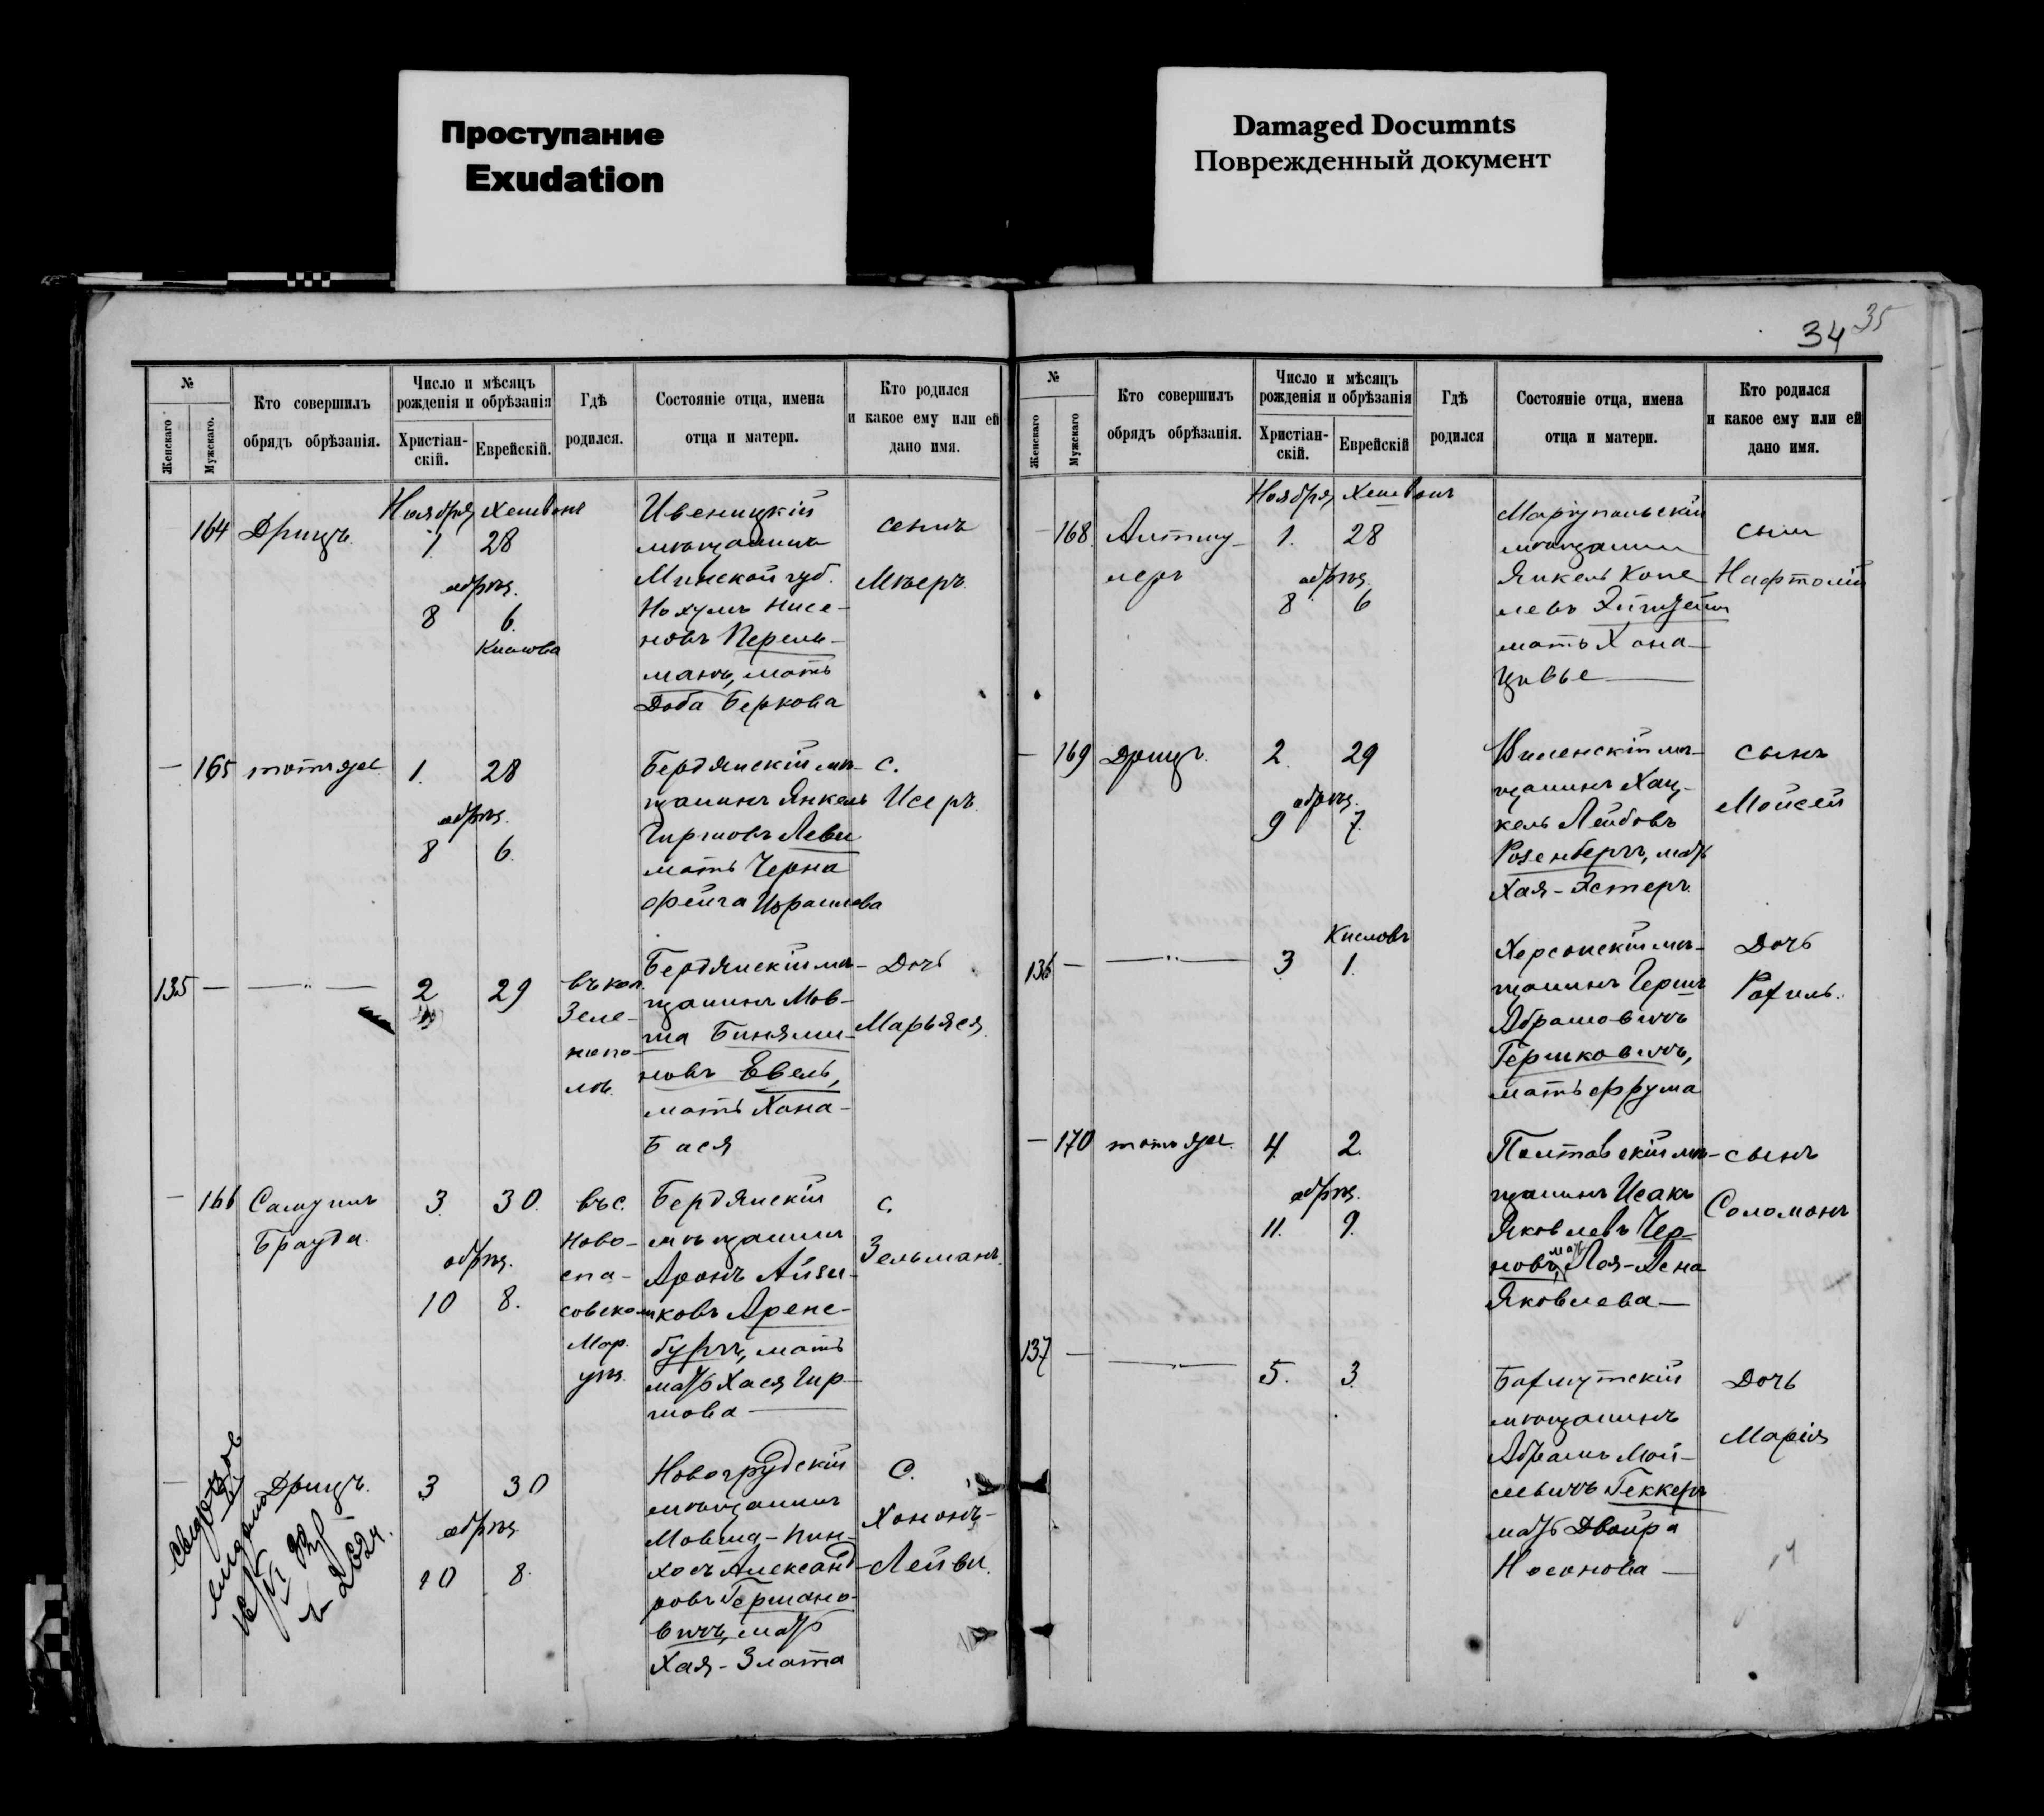 Проступание
Exudation
Damaged Documnts
Поврежденный документ
34 35
№
Женскаго
Мужскаго.
Кто совершилъ
обрядъ обрѣзанія.
Число и мѣсяцъ
рожденія и обрѣзанія
Христіан-
скій.
Еврейскій.
Гдѣ
родился.
Состояніе отца, имена
отца и матери.
Кто родился
и какое ему или ей
дано имя.
164
Дрицъ.
Ноября Хешвонъ
1 28
обрѣз.
8 6.
Кислова
Ивеницкій
мѣщанинъ
Минской губ.
Нохумъ Нисе-
новъ Перель-
манъ, мать
Доба Беркова
сынъ
Мѣеръ.
— 165
тотъ же
1. 28
обрѣз.
8 6.
Бердянскій мѣ-
щанинъ Янкель
Гиршовъ Леви
мать Черна
Фейга Израилева
с.
Исеръ.
135 —
— " —
2 29
въ кол.
Зеле-
нопо-
лѣ.
Бердянскій мѣ-
щанинъ Мов-
ша Бинями-
новъ Евель,
мать Хана-
Бася
Дочь
Марьяся.
— 166
Самуилъ
Брауды.
3. 30.
обрѣз.
10 8.
въ с.
Ново-
спа-
совском
Мар.
уѣз.
Бердянскій
мѣщанинъ
Аронъ Айзи-
ковъ Аренс-
бургъ, мать
матрь Хася Гир-
шова —
с.
Зельманъ.
—
Дрицъ.
3 30
обрѣз.
10 8.
Новогрудскій
мѣщанинъ
Мовша-Пин-
хосъ Александ-
ровъ Германо-
вичъ, матр
Хая-Злата
С.
Хононъ-
Лейви.
№
Женскаго
Мужскаго.
Кто совершилъ
обрядъ обрѣзанія.
Число и мѣсяцъ
рожденія и обрѣзанія
Христіан-
скій.
Еврейскій
Гдѣ
родился
Состояніе отца, имена
отца и матери.
Кто родился
и какое ему или ей
дано имя.
— 168.
Ноября Хешвонъ
1. 28
обрѣз.
8 6
Маріупольскій
мѣщанинъ
Янкель Копе
левъ
мать Хана-
Цивье —
сынъ
Нафтолій
— 169
Дрицъ.
2. 29
обрѣз.
9 7.
Виленскій мѣ-
щанинъ Хац-
кель Лейбовъ
Розенбергъ, матр
Хая-Эстеръ.
сынъ
Мойсей
136 —
— " —
Кисловъ
3 1.
Херсонскій мѣ-
щанинъ Герш
Абрамовичъ
Гершковичъ,
мать Фрума
Дочь
Рахиль.
— 170
тотъ же
4. 2.
обрѣз.
11. 9.
Полтавскій мѣ-
щанинъ Исакъ
Яковлевъ Чер-
новъ, мать Лея-Лена
Яковлева —
сынъ
Соломонъ
137 —
— " —
5. 3.
Бахмутскій
мѣщанинъ
Абрамъ Мой-
сѣвичъ Геккеръ
матрь Двойра
Носонова —
Дочь
Марія